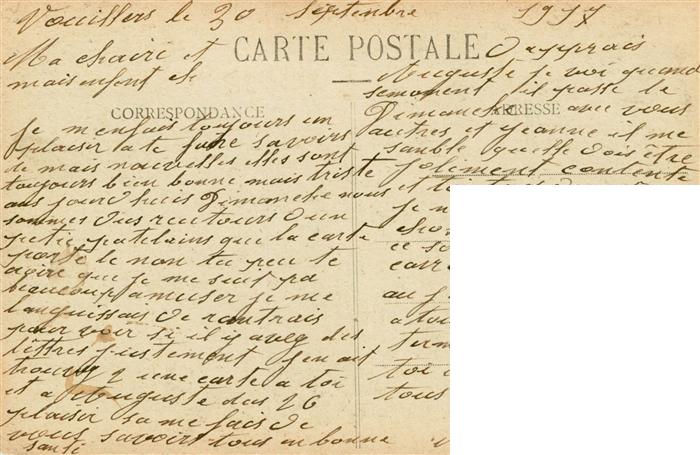 Vouillers le 30 septembre 1917
Ma chaire et
mais enfent ch
CARTE POSTALE
CORRESPONDANCE
ADRESSE
Je m'enfais toujours un
plaisir a te faire savoirs
de mais nouvelles elles sont
toujours bien bonne mais triste
aus jourd huis Dimanche nous
sommes dus recttours d'un
petit patelains que la carte
porte le nom tu peu te
daire que je me suit pa
beaucoup amuser je me
languissais de rantrais
pour voir si il y aveg des
lettres justement j'en ait
trouvg 2 une carte a toi
et a Auguste dus 26
plaisir sa me fais de
vous savoirs tous en bonne
santé
D'apprais
Auguste je voi quand
semoment il passe le
Dimanche avec vous
autres et Jeanne il me
samble qu'elle dois être
jolement contente
et
je n
cho
ce so
carr
au f
a tou
term
toi
tous